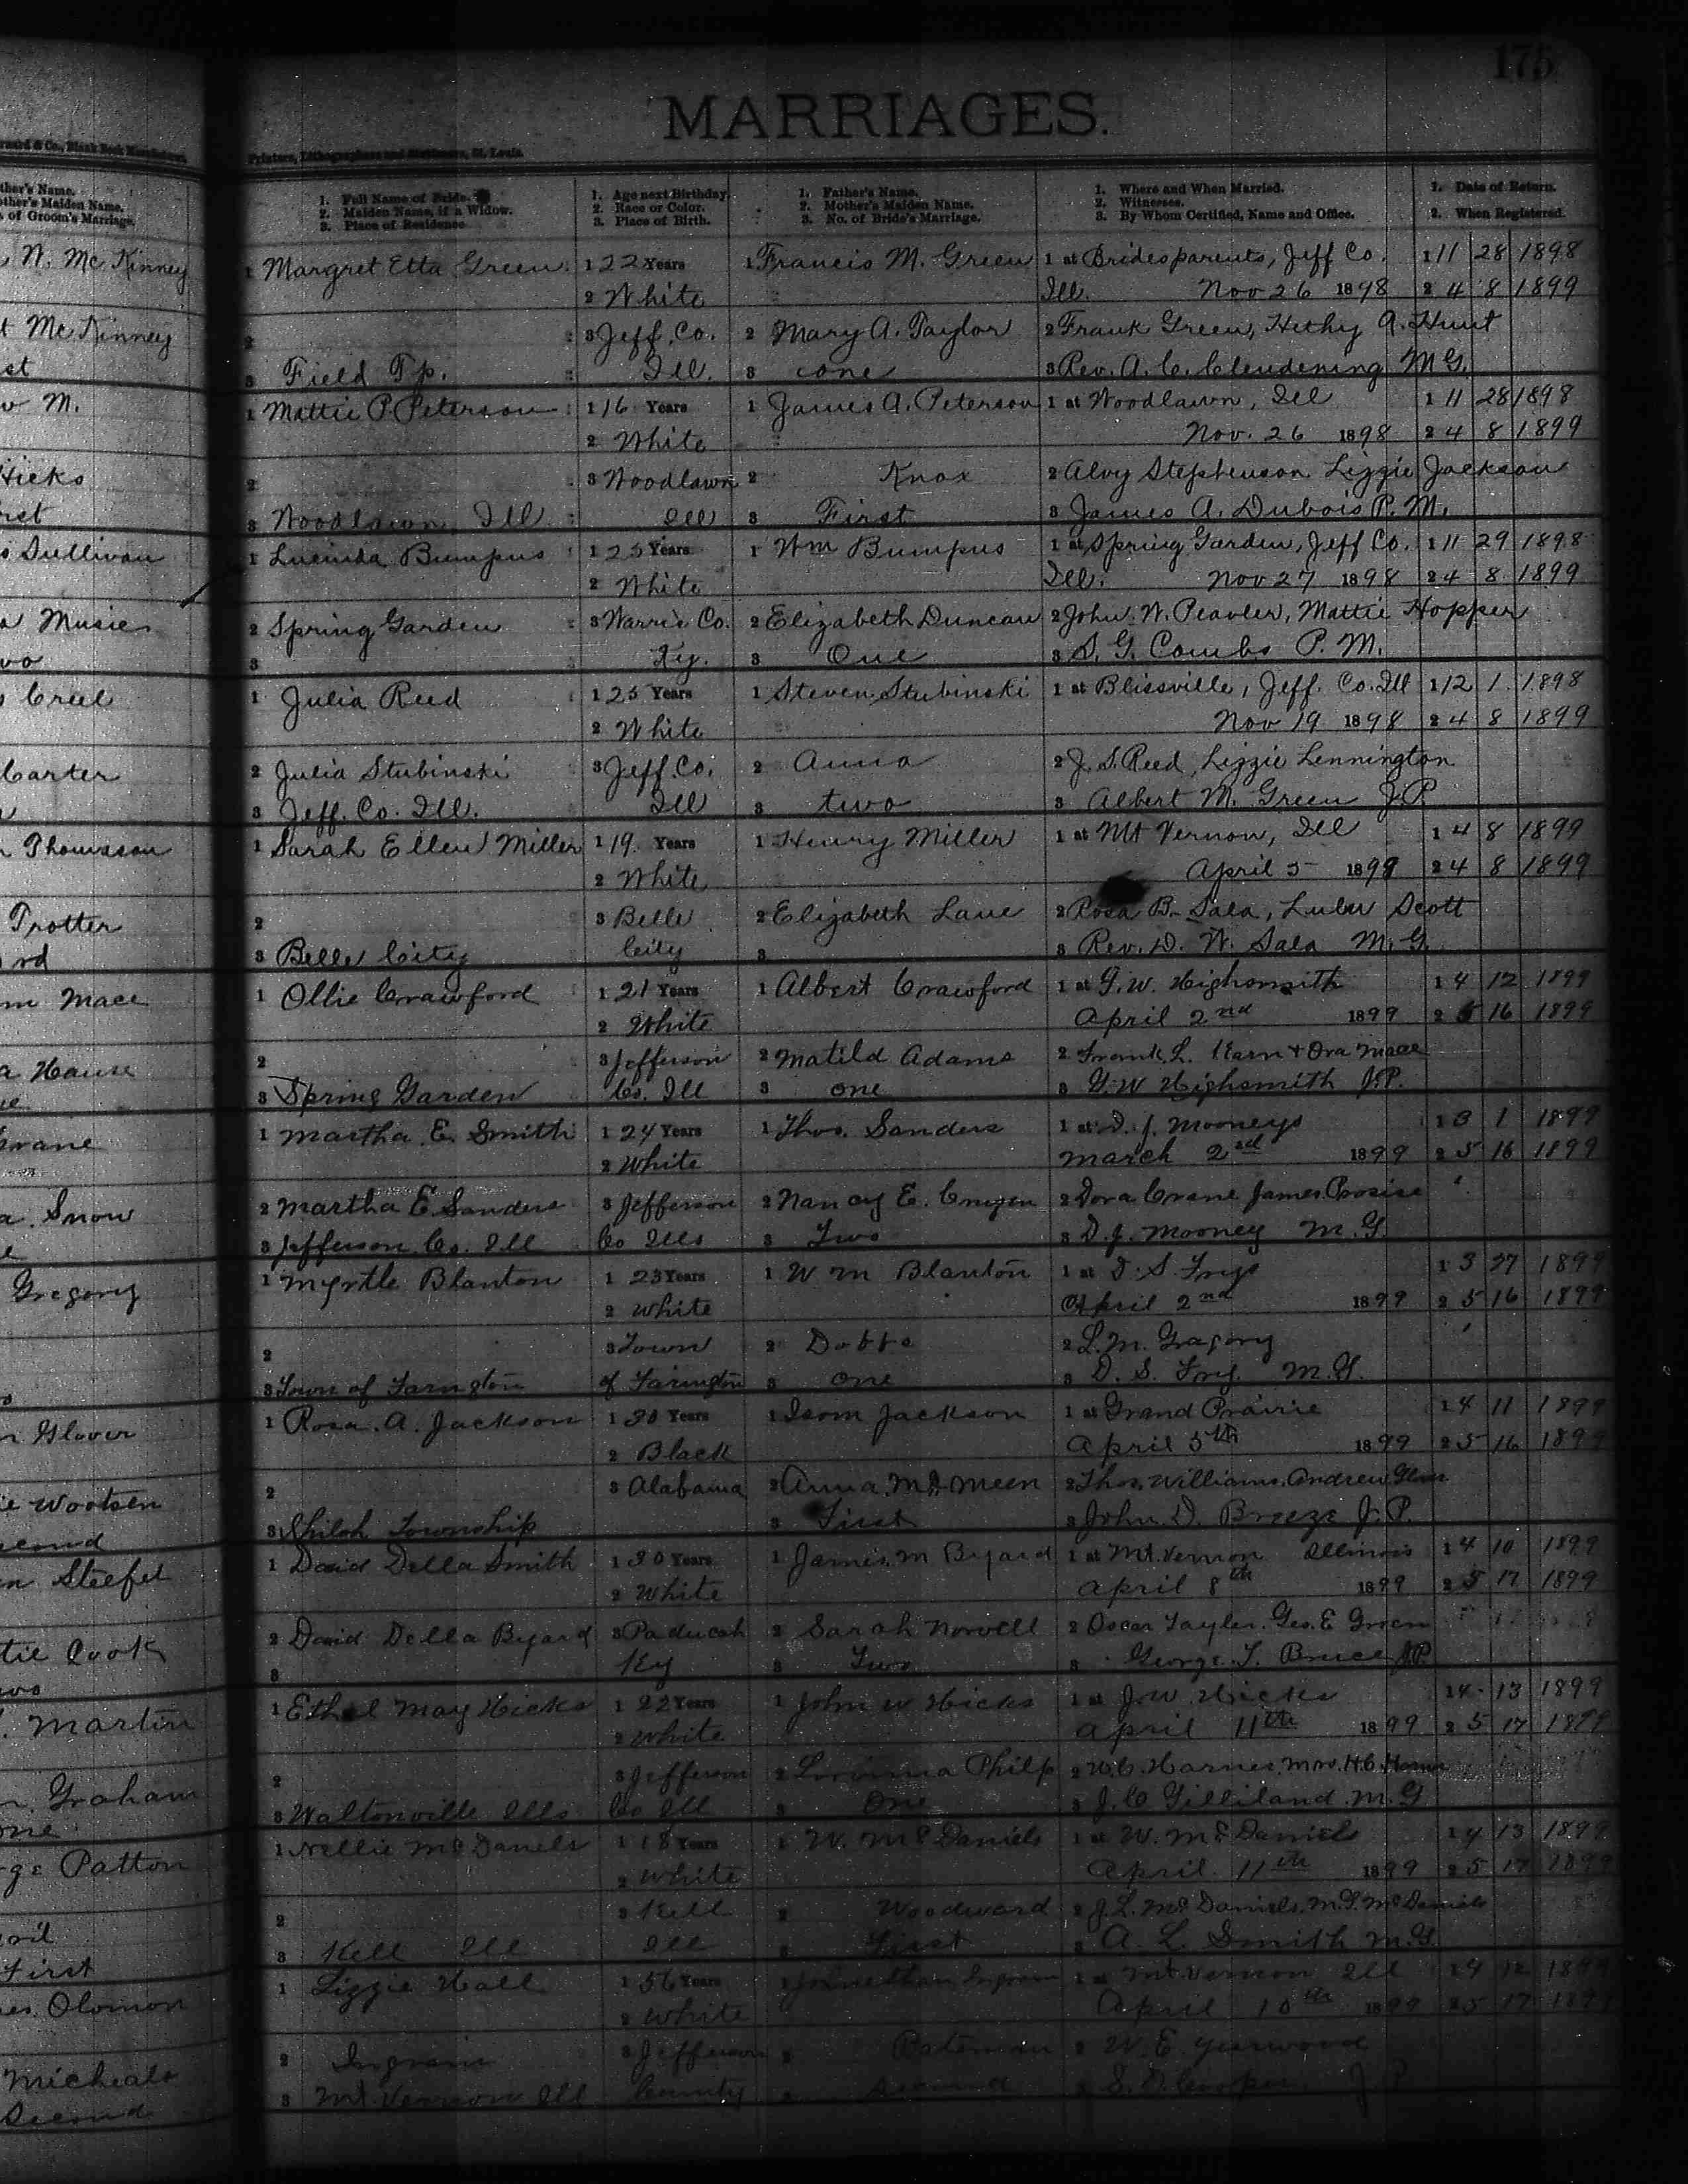 175
MARRIAGES.
Printers, Lithographers and Stationers, St. Louis.
1. Full Name of Bride. 1. Age next Birthday. 1. Father's Name. 1. Where and When Married. 1. Date of Return.
2. Maiden Name, if a Widow. 2. Race or Color. 2. Mother's Maiden Name. 2. Witnesses. 2. When Registered.
3. Place of Residence 3. Place of Birth. 3. No. of Bride's Marriage. 3. By Whom Certified, Name and Office.
N. McKinney 1 Margret Etta Green 1 22 Years 1 Francis M. Green 1 at Brides parents, Jeff Co. 1 11 28 1898
2 White Ill. Nov 26 1898 2 4 8 1899
McKinney 2 3 Jeff. Co. 2 Mary A. Taylor 2 Frank Green, Hethy A. Hunt
3 Field Tp. Ill. 3 one 3 Rev. A. C. Clendening M G.
M. 1 Mattie P. Peterson 1 16 Years 1 James A. Peterson 1 at Woodlawn, Ill 1 11 28 1898
2 White Nov. 26 1898 2 4 8 1899
Hicks 2 3 Woodlawn 2 Knox 2 Alvy Stephenson Lizzie Jackson
3 Woodlawn, Ill Ill 3 First 3 James A. Dubois P. M.
Sullivan 1 Lucinda Bumpus 1 25 Years 1 Wm Bumpus 1 at Spring Garden, Jeff Co. 1 11 29 1898
2 White Ill. Nov 27 1898 2 4 8 1899
Music 2 Spring Garden 3 Warric Co. 2 Elizabeth Duncan 2 John W. Peavler, Mattie Hopper
3 Ky. 3 One 3 S. G. Combs P. M.
Creel 1 Julia Reed 1 25 Years 1 Steven Stubinski 1 at Blissville, Jeff. Co. Ill 1 12 1 1898
2 White Nov 19 1898 2 4 8 1899
Carter 2 Julia Stubinski 3 Jeff. Co. 2 Anna 2 J. S. Reed, Lizzie Lennington
3 Jeff. Co. Ill. Ill 3 two 3 Albert M. Green J. P.
Thomason 1 Sarah Ellen Miller 1 19 Years 1 Henry Miller 1 at Mt Vernon, Ill 1 4 8 1899
2 White April 5 1899 2 4 8 1899
Trotter 2 3 Belle 2 Elizabeth Lane 2 Rosa B. Sala, Lulu Scott
3 Belle City City 3 3 Rev. D. W. Sala M. G.
Mace 1 Ollie Crawford 1 21 Years 1 Albert Crawford 1 at G. W. Highsmith 1 4 12 1899
2 White April 2nd 1899 2 5 16 1899
Hause 2 3 Jefferson 2 Matild Adams 2 Frank L. & Ora Mace
3 Spring Garden Co. Ill 3 one 3 G. W Highsmith J. P.
Crane 1 Martha E. Smith 1 24 Years 1 Thos. Sanders 1 at D. J. Mooneys 1 3 1 1899
2 White March 2nd 1899 2 5 16 1899
Snow 2 Martha E. Sanders 3 Jefferson 2 Nancy E. 2 Dora Crane James Prosise
3 Jefferson Co. Ill Co Ills 3 Two 3 D. J. Mooney M. G.
Gregory 1 Myrtle Blanton 1 23 Years 1 W m Blanton 1 at D. S. Frys 1 3 27 1899
2 White April 2nd 1899 2 5 16 1899
2 3 Town 2 Dobbs 2 L. M. Gragory
3 Town of Farington of Farington 3 one 3 D. S. Fry. M. G.
Glover 1 Rosa. A. Jackson 1 30 Years 1 Isom Jackson 1 at Grand Prairie 1 4 11 1899
2 Black April 5th 1899 2 5 16 1899
Wootsen 2 3 Alabama 2 Anna 2 Thos. Williams, Andrew
3 Shiloh Township 3 First 3 John. D. Breeze J. P.
Steefel 1 David Della Smith 1 30 Years 1 James. M Byard 1 at Mt. Vernon Illinois 1 4 10 1899
2 White April 8th 1899 2 5 17 1899
Cook 2 David Della Byard 3 Paducah 2 Sarah Norvell 2 Oscar Tayler. Geo. E Green
3 Ky 3 Two 3 George. T. Bruce J.P.
Martin 1 Ethel May Hicks 1 22 Years 1 John W Hicks 1 at J. W. Hicks 1 4 13 1899
2 White April 11th 1899 2 5 17 1899
Graham 2 3 Jefferson 2 Philp 2
3 Waltonville Ills Co Ill 3 One 3 J. C Gilliland. M. G
Patton 1 Nellie McDanels 1 18 Years 1 W. McDaniels 1 at W. McDaniels 1 4 13 1899
2 White April 11th 1899 2 5 17 1899
2 3 Kell 2 Woodward 2 J. L. McDaniels,
First 3 Kell Ill Ill 3 First 3 A. L. Smith M. G
Olomon 1 Lizzie Hall 1 56 Years 1 1 at Mt. Vernon Ill 1 4 12 1899
2 White April 10th 1899 2 5 17 1899
Micheals 2 Ingram 3 Jefferson 2 2 W. E. Yearwood
Second 3 Mt. Vernon Ill County 3 Second 3 J P